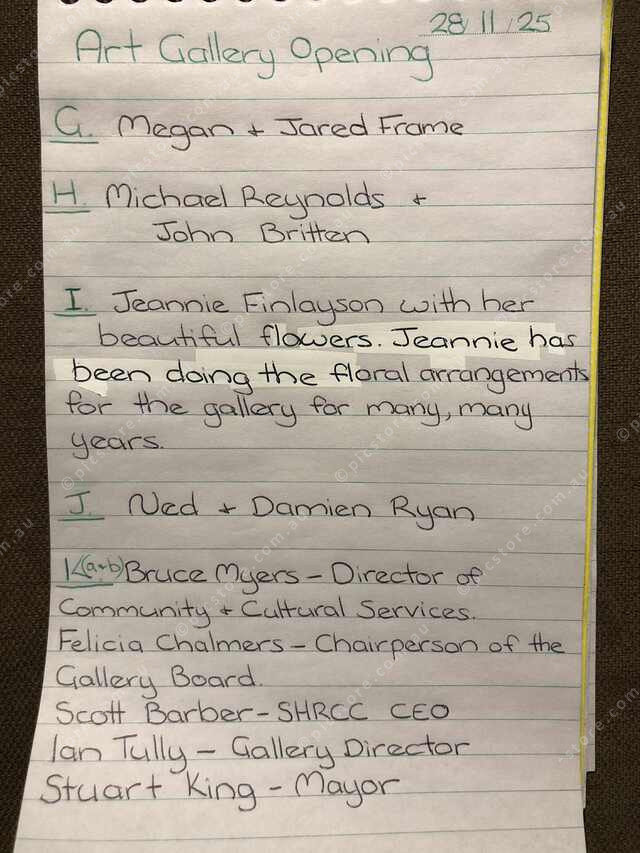 28/11/25
Art Gallery Opening
G. Megan + Jared Frame
H. Michael Reynolds +
John Britten
I. Jeannie Finlayson with her
beautiful flowers. Jeannie has
been doing the floral arrangements
for the gallery for many, many
years.
J. Ned + Damien Ryan
K(a+b) Bruce Myers - Director of
Community + Cultural Services.
Felicia Chalmers - Chairperson of the
Gallery Board.
Scott Barber - SHRCC CEO
Ian Tully - Gallery Director
Stuart King - Mayor